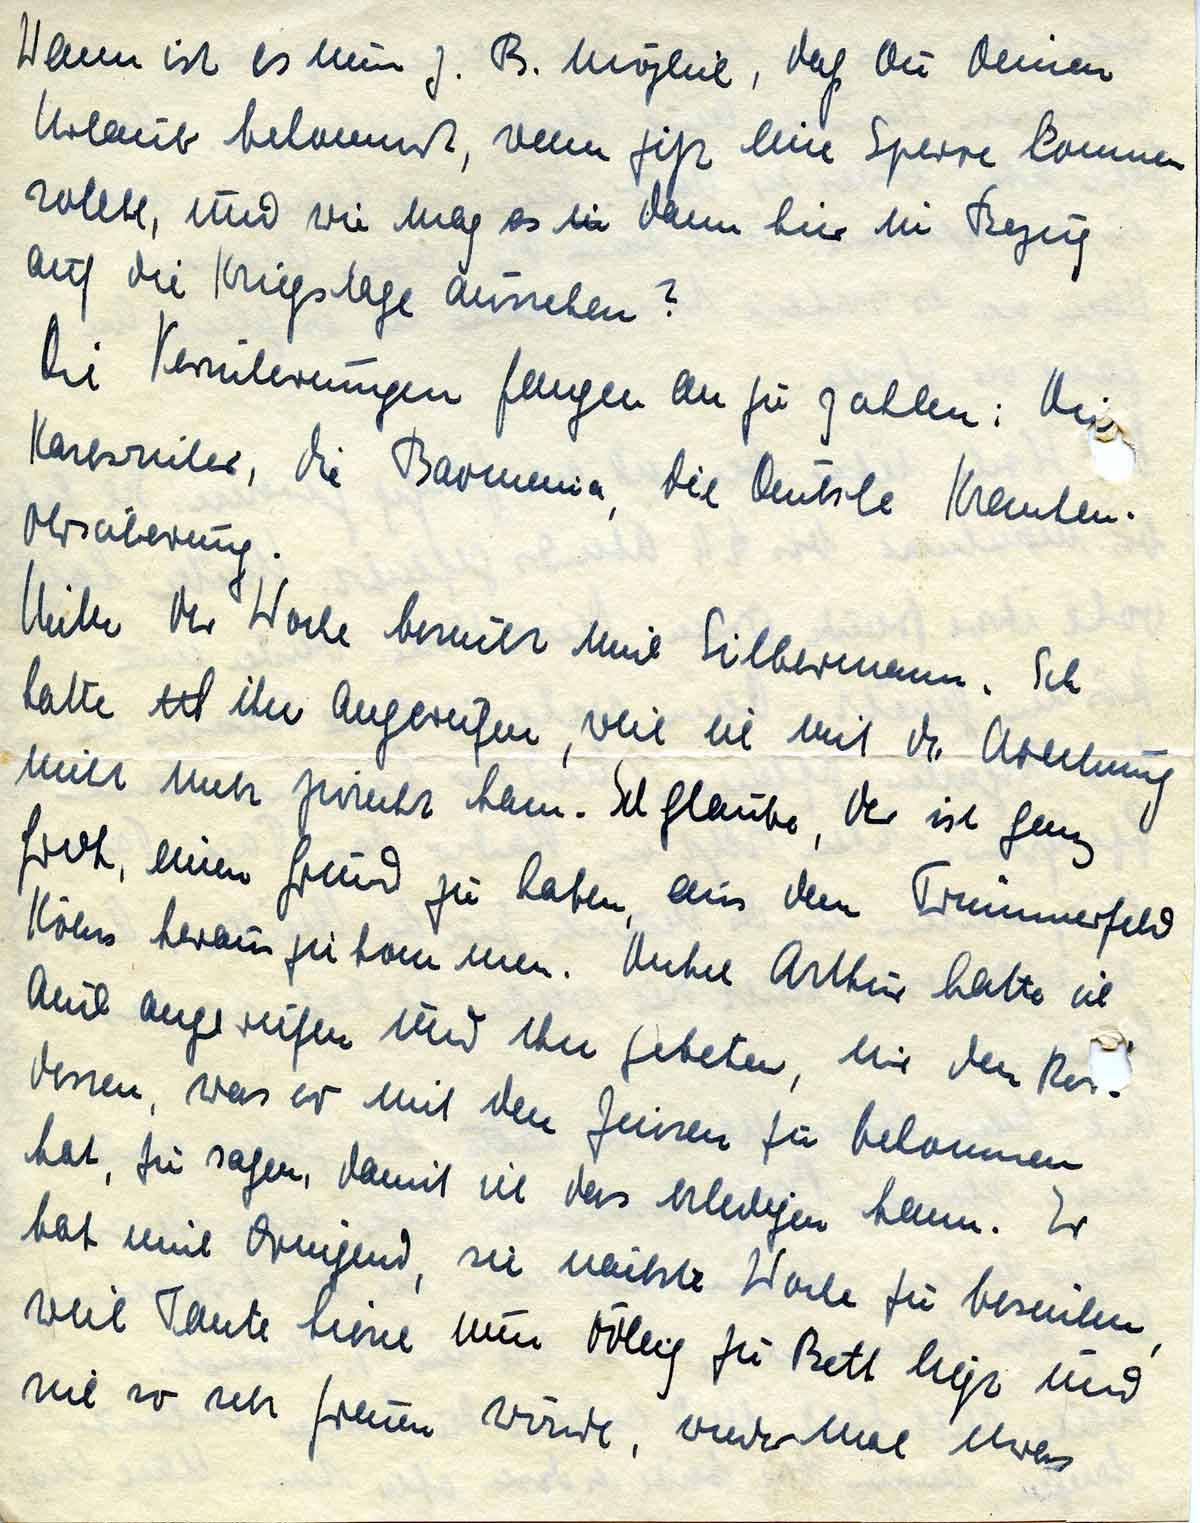 Wann ist es nun z. B. möglich, daß Du Deinen
Urlaub bekommst, wenn jetzt eine Sperre kommen
sollte, und wie mag es in dann hier in Bezug
auf die Kriegslage aussehen?
Die Versicherungen fangen an zu zahlen: Die
Karlsruher, die Barmenia, die Deutsche Kranken-
versicherung.
Mitte der Woche besucht mich Silbermann. Ich
hatte ihn angerufen, weil ich mit der
nicht mehr zurecht kam. Ich glaube, der ist ganz
froh, einen Grund zu haben, aus dem Trümmerfeld
Kölns herauszukommen. Onkel Arthur hatte ich
auch angerufen und ihn gebeten, mir den
dessen, was er mit den Zinsen zu bekommen
hat, zu sagen, damit ich das erledigen kann. Er
bat mich dringend, sie nächste Woche zu besuchen,
weil Tante Liese nun völlig zu Bett liegt und
sich so sehr freuen würde, wieder mal etwas